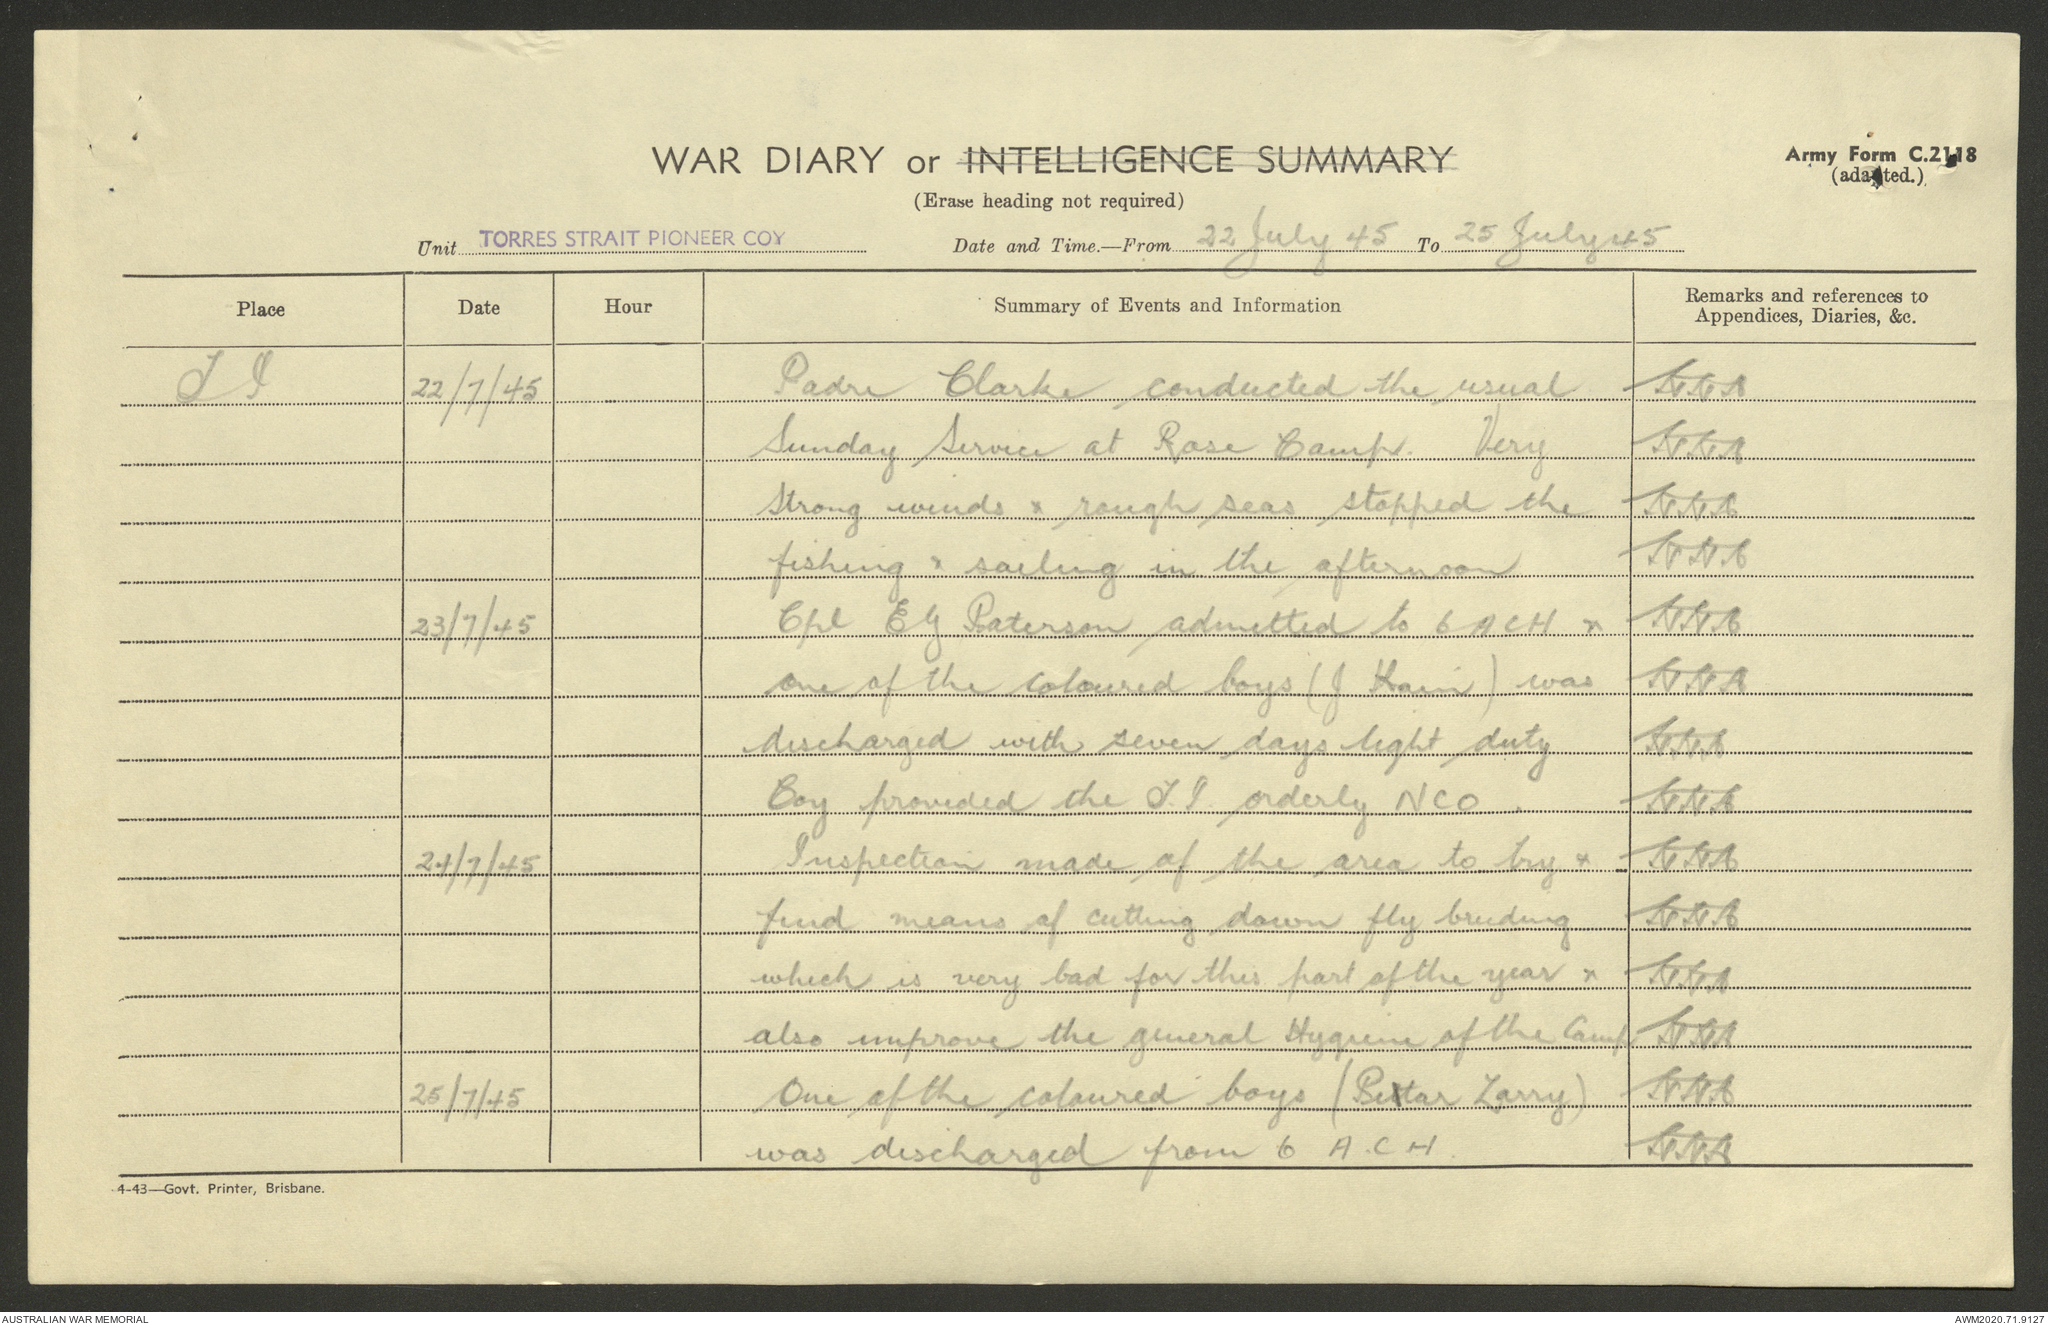 WAR DIARY or INTELLIGENCE SUMMARY
Army Form C.2118
(adapted.)
(Erase heading not required)
Unit TORRES STRAIT PIONEER COY Date and Time.—From 22 July 45 To 25 July 45
Place Date Hour Summary of Events and Information Remarks and references to
Appendices, Diaries, &c.
T I 22/7/45 Padre Clarke conducted the usual
Sunday Service at Rose Camp. Very
Strong winds & rough seas stopped the
fishing & sailing in the afternoon
23/7/45 Cpl EG Paterson admitted to 6 ACH &
one of the coloured boys (J Hain) was
discharged with seven days light duty
Coy provided the T.I. orderly NCO.
24/7/45 Inspection made of the area to try &
find means of cutting down fly breeding
which is very bad for this part of the year &
also improve the general Hygiene of the Camp
25/7/45 One of the coloured boys ( Zarry)
was discharged from 6 A.C.H.
4-43—Govt. Printer, Brisbane.
AUSTRALIAN WAR MEMORIAL
AWM2020.71.9127